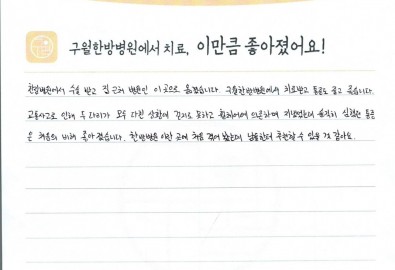 구월한방병원에서 치료, 이만큼 좋아졌어요!
한방병원에서 수술 받고 집 근처 병원인 이 곳으로 옮겼습니다. 구월한방병원에서 치료받고 통증도 줄고 좋습니다.
교통사고로 인해 두 다리가 모두 다친 상황에 걷지도 못하고 휠체어에 의존하며 지냈었는데 솔직히 심했던 통증
은 처음에 비해 좋아졌습니다. 한방병원 이란 곳에 처음 겪어 봤는데 남들한테 추천할 수 있을 것 같아요.